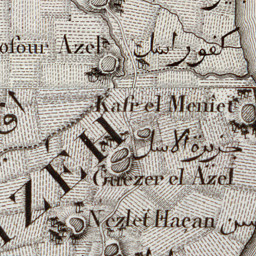 ofour Azel كفور اسل
Kafr el Meniet
جزيرة الاسل
Gaezer el Azel
Nezlet Haçan
ZÉH